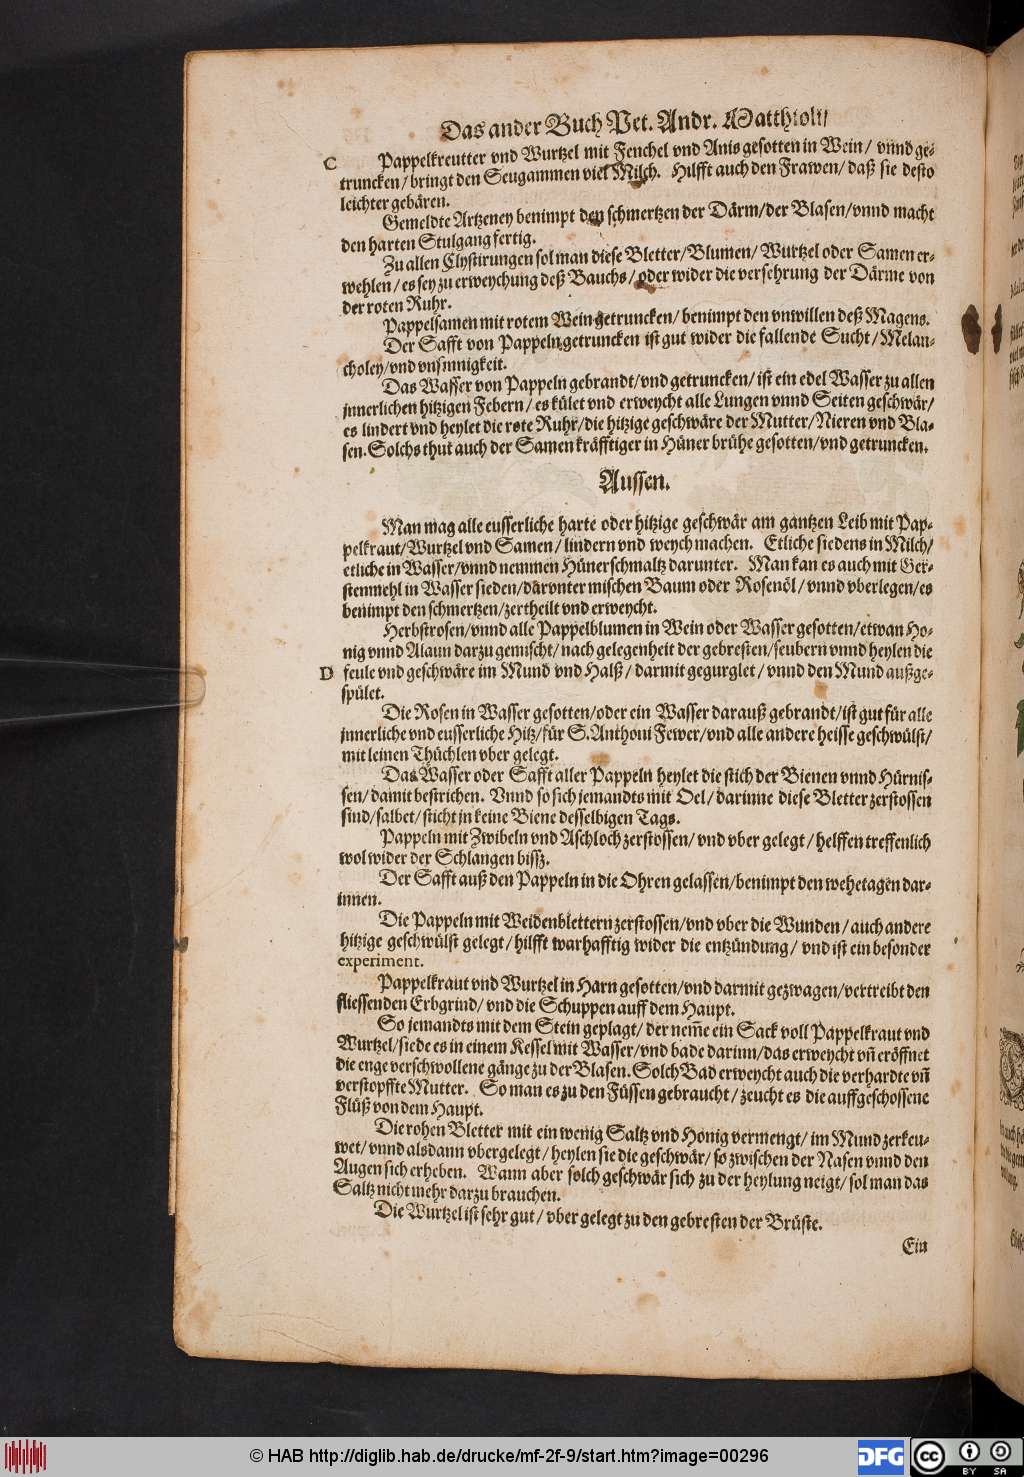 Das ander Buch Pet. Andr. Matthioli/
C Pappelkreutter vnd Wurtzel mit Fenchel vnd Anis gesotten in Wein/ vnnd ge-
truncken/ bringt den Seugammen viel Milch. Hilfft auch den Frawen/ daß sie desto
leichter gebären.
Gemeldte Artzeney benimpt den schmertzen der Därm/ der Blasen/ vnnd macht
den harten Stulgang fertig.
Zu allen Clystirungen sol man diese Bletter/ Blumen/ Wurtzel oder Samen er-
wehlen/ es sey zu erweychung deß Bauchs/ oder wider die versehrung der Därme von
der roten Ruhr.
Pappelsamen mit rotem Wein getruncken/ benimpt den vnwillen deß Magens.
Der Safft von Pappeln getruncken ist gut wider die fallende Sucht/ Melan-
choley/ vnd vnsinnigkeit.
Das Wasser von Pappeln gebrandt/ vnd getruncken/ ist ein edel Wasser zu allen
jnnerlichen hitzigen Febern/ es kület vnd erweycht alle Lungen vnnd Seiten geschwär/
es lindert vnd heylet die rote Ruhr/ die hitzige geschwäre der Mutter/ Nieren vnd Bla-
sen. Solchs thut auch der Samen kräfftiger in Hüner brühe gesotten/ vnd getruncken.
Aussen.
Man mag alle eusserliche harte oder hitzige geschwär am gantzen Leib mit Pap-
pelkraut/ Wurtzel vnd Samen/ lindern vnd weych machen. Etliche siedens in Milch/
etliche in Wasser/ vnnd nemmen Hünerschmaltz darunter. Man kan es auch mit Ger-
stenmehl in Wasser sieden/ darvnter mischen Baum oder Rosenöl/ vnnd vberlegen/ es
benimpt den schmertzen/ zertheilt vnd erweycht.
Herbstrosen/ vnnd alle Pappelblumen in Wein oder Wasser gesotten/ etwan Ho-
nig vnnd Alaun darzu gemischt/ nach gelegenheit der gebresten/ seubern vnnd heylen die
D feule vnd geschwäre im Mund vnd Halß/ darmit gegurglet/ vnnd den Mund außge-
spület.
Die Rosen in Wasser gesotten/ oder ein Wasser darauß gebrandt/ ist gut für alle
jnnerliche vnd eusserliche Hitz/ für S. Anthoni Fewer/ vnd alle andere heisse geschwülst/
mit leinen Thüchlen vber gelegt.
Das Wasser oder Safft aller Pappeln heylet die stich der Bienen vnnd Hürnis-
sen/ damit bestrichen. Vnnd so sich jemandts mit Oel/ darinne diese Bletter zerstossen
sind/ salbet/ sticht jn keine Biene desselbigen Tags.
Pappeln mit Zwibeln vnd Aschloch zerstossen/ vnd vber gelegt/ helffen treffenlich
wol wider der Schlangen bissz.
Der Safft auß den Pappeln in die Ohren gelassen/ benimpt den wehetagen dar-
innen.
Die Pappeln mit Weidenblettern zerstossen/ vnd vber die Wunden/ auch andere
hitzige geschwülst gelegt/ hilfft warhafftig wider die entzündung/ vnd ist ein besonder
experiment.
Pappelkraut vnd Wurtzel in Harn gesotten/ vnd darmit gezwagen/ vertreibt den
fliessenden Erbgrind/ vnd die Schuppen auff dem Haupt.
So jemandts mit dem Stein geplagt/ der nem̃e ein Sack voll Pappelkraut vnd
Wurtzel/ siede es in einem Kessel mit Wasser/ vnd bade darinn/ das erweycht vñ eröffnet
die enge verschwollene gänge zu der Blasen. Solch Bad erweycht auch die verhardte vñ
verstopffte Mutter. So man es zu den Füssen gebraucht/ zeucht es die auffgeschossene
Flüß von dem Haupt.
Die rohen Bletter mit ein wenig Saltz vnd Honig vermengt/ im Mund zerkeu-
wet/ vnnd alsdann vbergelegt/ heylen sie die geschwär/ so zwischen der Nasen vnnd den
Augen sich erheben. Wann aber solch geschwär sich zu der heylung neigt/ sol man das
Saltz nicht mehr darzu brauchen.
Die Wurtzel ist sehr gut/ vber gelegt zu den gebresten der Brüste.
Ein
© HAB http://diglib.hab.de/drucke/mf-2f-9/start.htm?image=00296
DFG
cc BY SA